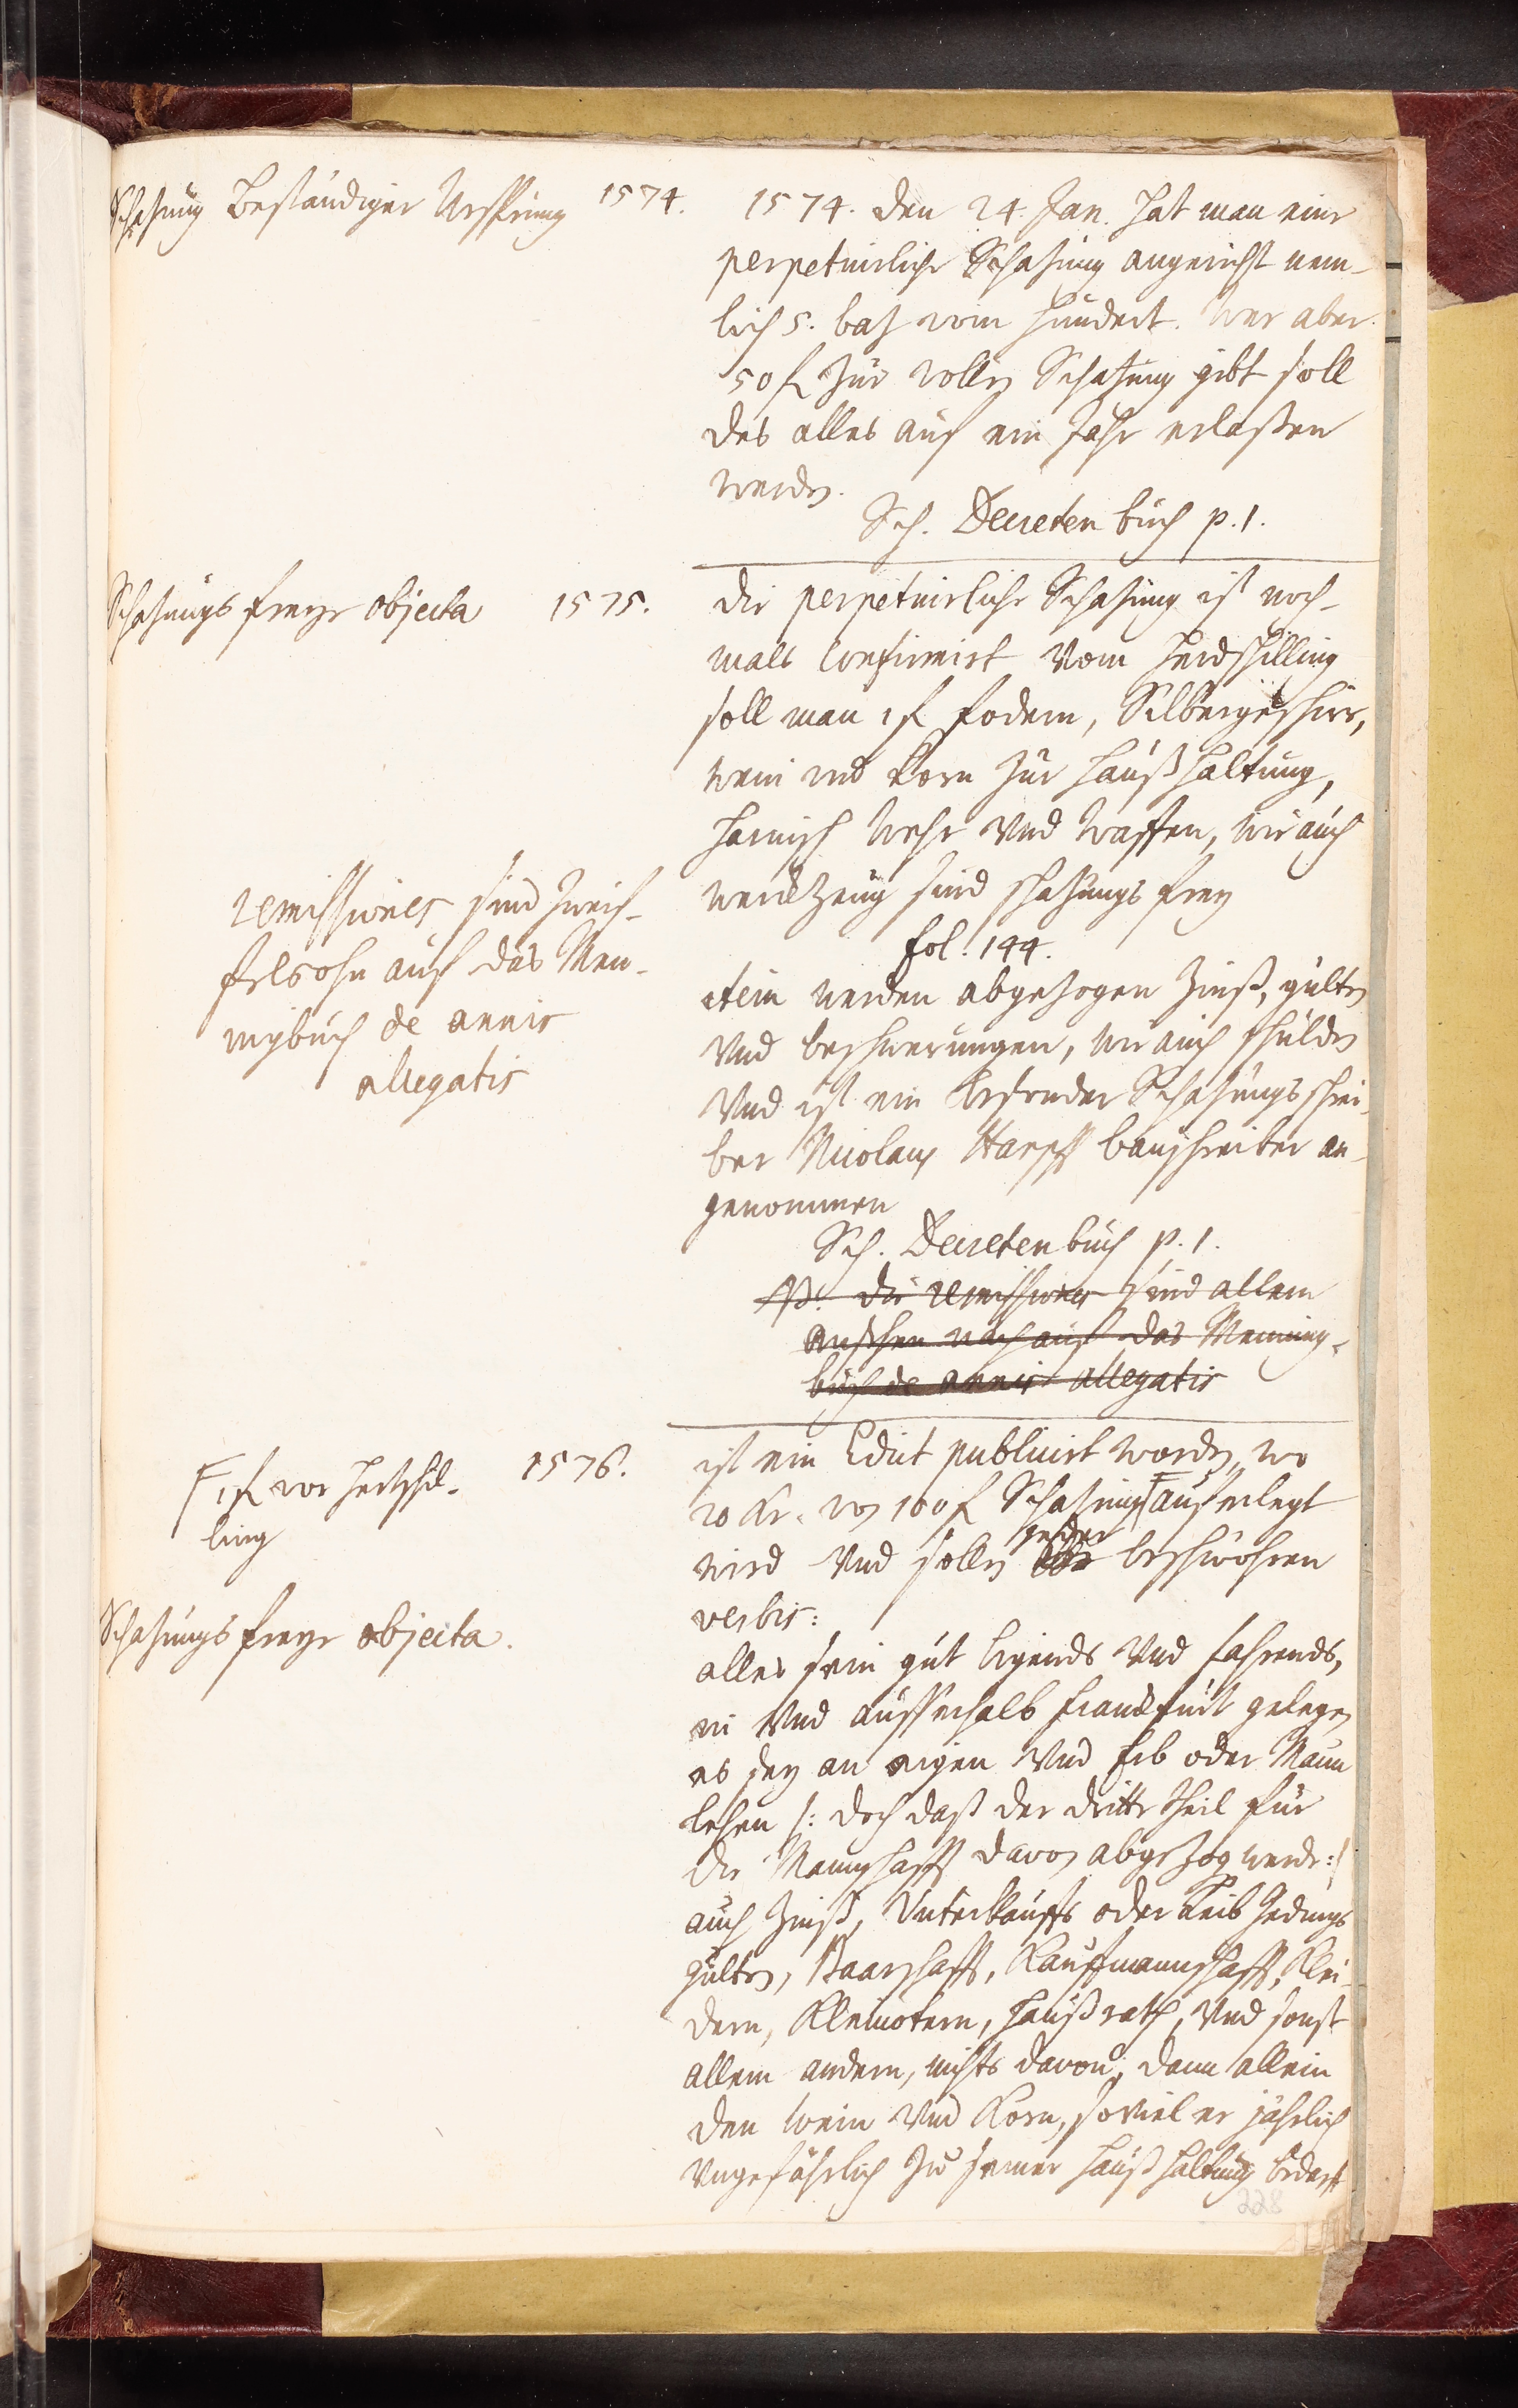 Schatzung Beständiger Ursprung 1574.
1574. den 24. Jan. hat man eine
perpetuirliche Schatzung angericht nem-
lich 5. batz vom hundert. Wer aber
50 f. zur vollen Schatzung gibt soll
des alles auf ein Jahr erlaßen
werden.
Sch. Decreten buch p. 1.
Schatzungs freye objecta 1575.
die perpetuirliche Schatzung ist noch-
mals confirmirt vom herdschilling
soll man 1 f. fodern, Silbergeschirr,
wein und Korn zur Haußhaltung,
Harnisch Wehr und Waffen, wie auch
werckzeug sind schatzungs frey
fol. 144.
remissiones sind zweif-
felsohn auf das Men-
nigbuch de annis
allegatis
item werden abgezogen Zinß, gülten
und beschwerungen, wie auch schulden
Und ist ein besonder Schatzungsschrei-
ber Nicolaus Harpff bauschreiber an-
genommen
Sch. Decreten buch p. 1.
NB. die remissiones sind allem
ansehen nach auf das Mennig-
buch de annis allegatis
1576.
ist ein Edict publicirt worden, wo
20 Kr. von 100 f Schatzung auferlegt
F 1 f. vor hertschil-
ling
wird Und sollen jeder beschwöhren
verbis:
Schatzungs freye objecta.
alles sein gut ligends Und fahrends,
in Und ausserhalb Franckfurt gelegen
es sey an eigen Und Erb oder Mann
lehen /: doch daß der dritte theil für
die Mannschafft davon abgezog werde :/
auch Zinß, Unterkauffs oder Leib Gedings
Gülten, Baarschafft, Kauffmannschafft, Klei-
dern, Kleinotern, Haußrath, Und sonst
allem andern, nichts davon, dann allein
den Wein Und Korn, soviel er jährlich
Ungefährlich zu seiner Haußhaltung bedarff
228